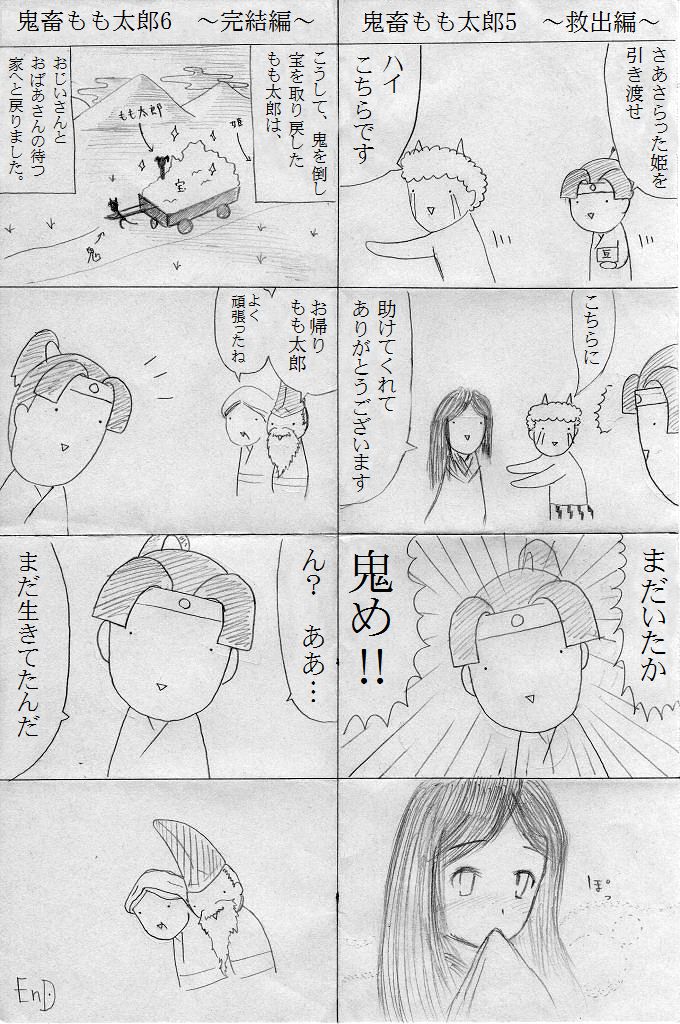 鬼畜もも太郎5　～救出編～
さあさらった姫を
引き渡せ
ハイ
こちらです
豆
こちらに
助けてくれて
ありがとうございます
まだいたか
鬼め!!
ぽっ
鬼畜もも太郎6　～完結編～
こうして、鬼を倒し
宝を取り戻した
もも太郎は、
姫
もも太郎
宝
鬼
おじいさんと
おばあさんの待つ
家へと戻りました。
お帰り
もも太郎
よく
頑張ったね
ん?　ああ…
まだ生きてたんだ
EnD